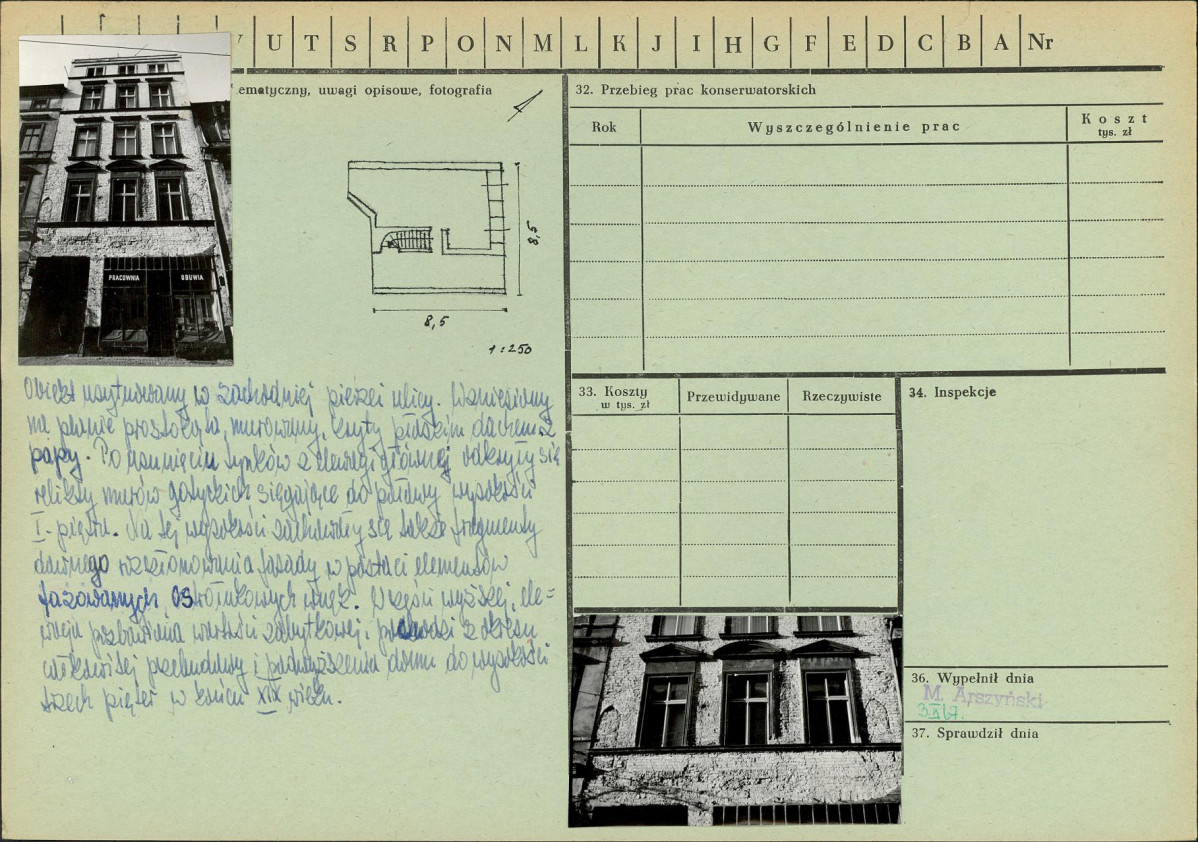 U T S R P O N M L K J I H G F E D C B A Nr
ematyczny, uwagi opisowe, fotografia
PRACOWNIA OBUWIA
8,5
8,5
1:250
Obiekt usytuowany w zachodniej pierzei ulicy. Wzniesiony
na planie prostokąta, murowany, kryty płaskim dachem z
papy. Po usunięciu tynków z elewacji głównej odkryły się
relikty murów gotyckich sięgające do połowy wysokości
I-piętra. Na tej wysokości zachowały się także fragmenty
dawnego rozczłonowania fasady w postaci elementów
fazowanych, ostrołukowych wnęk. W części wyższej, ele=
wacja pozbawiona wartości zabytkowej, pochodzi z okresu
całkowitej przebudowy i podwyższenia domu do wysokości
trzech pięter w końcu XIX wieku.
32. Przebieg prac konserwatorskich
Rok Wyszczególnienie prac Koszt
tys. zł
33. Koszty
w tys. zł
Przewidywane Rzeczywiste
34. Inspekcje
36. Wypełnił dnia
M. Arszyński
37. Sprawdził dnia